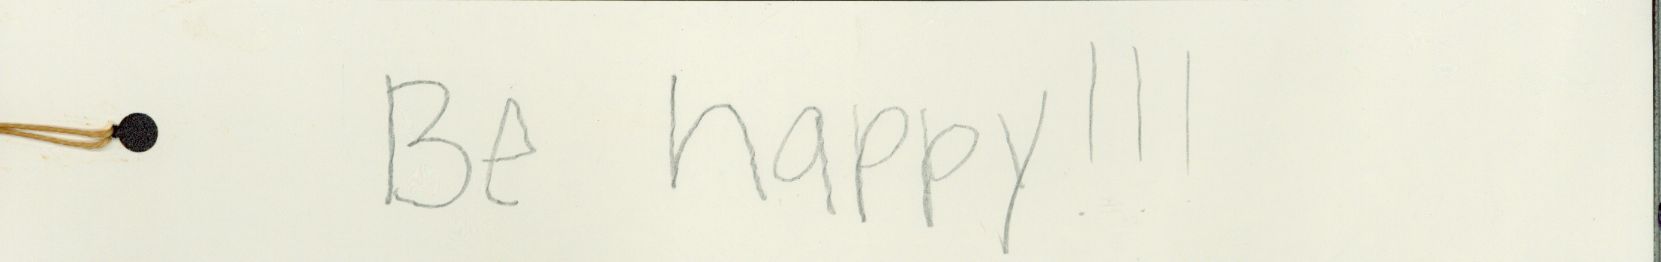 Be happy!!!